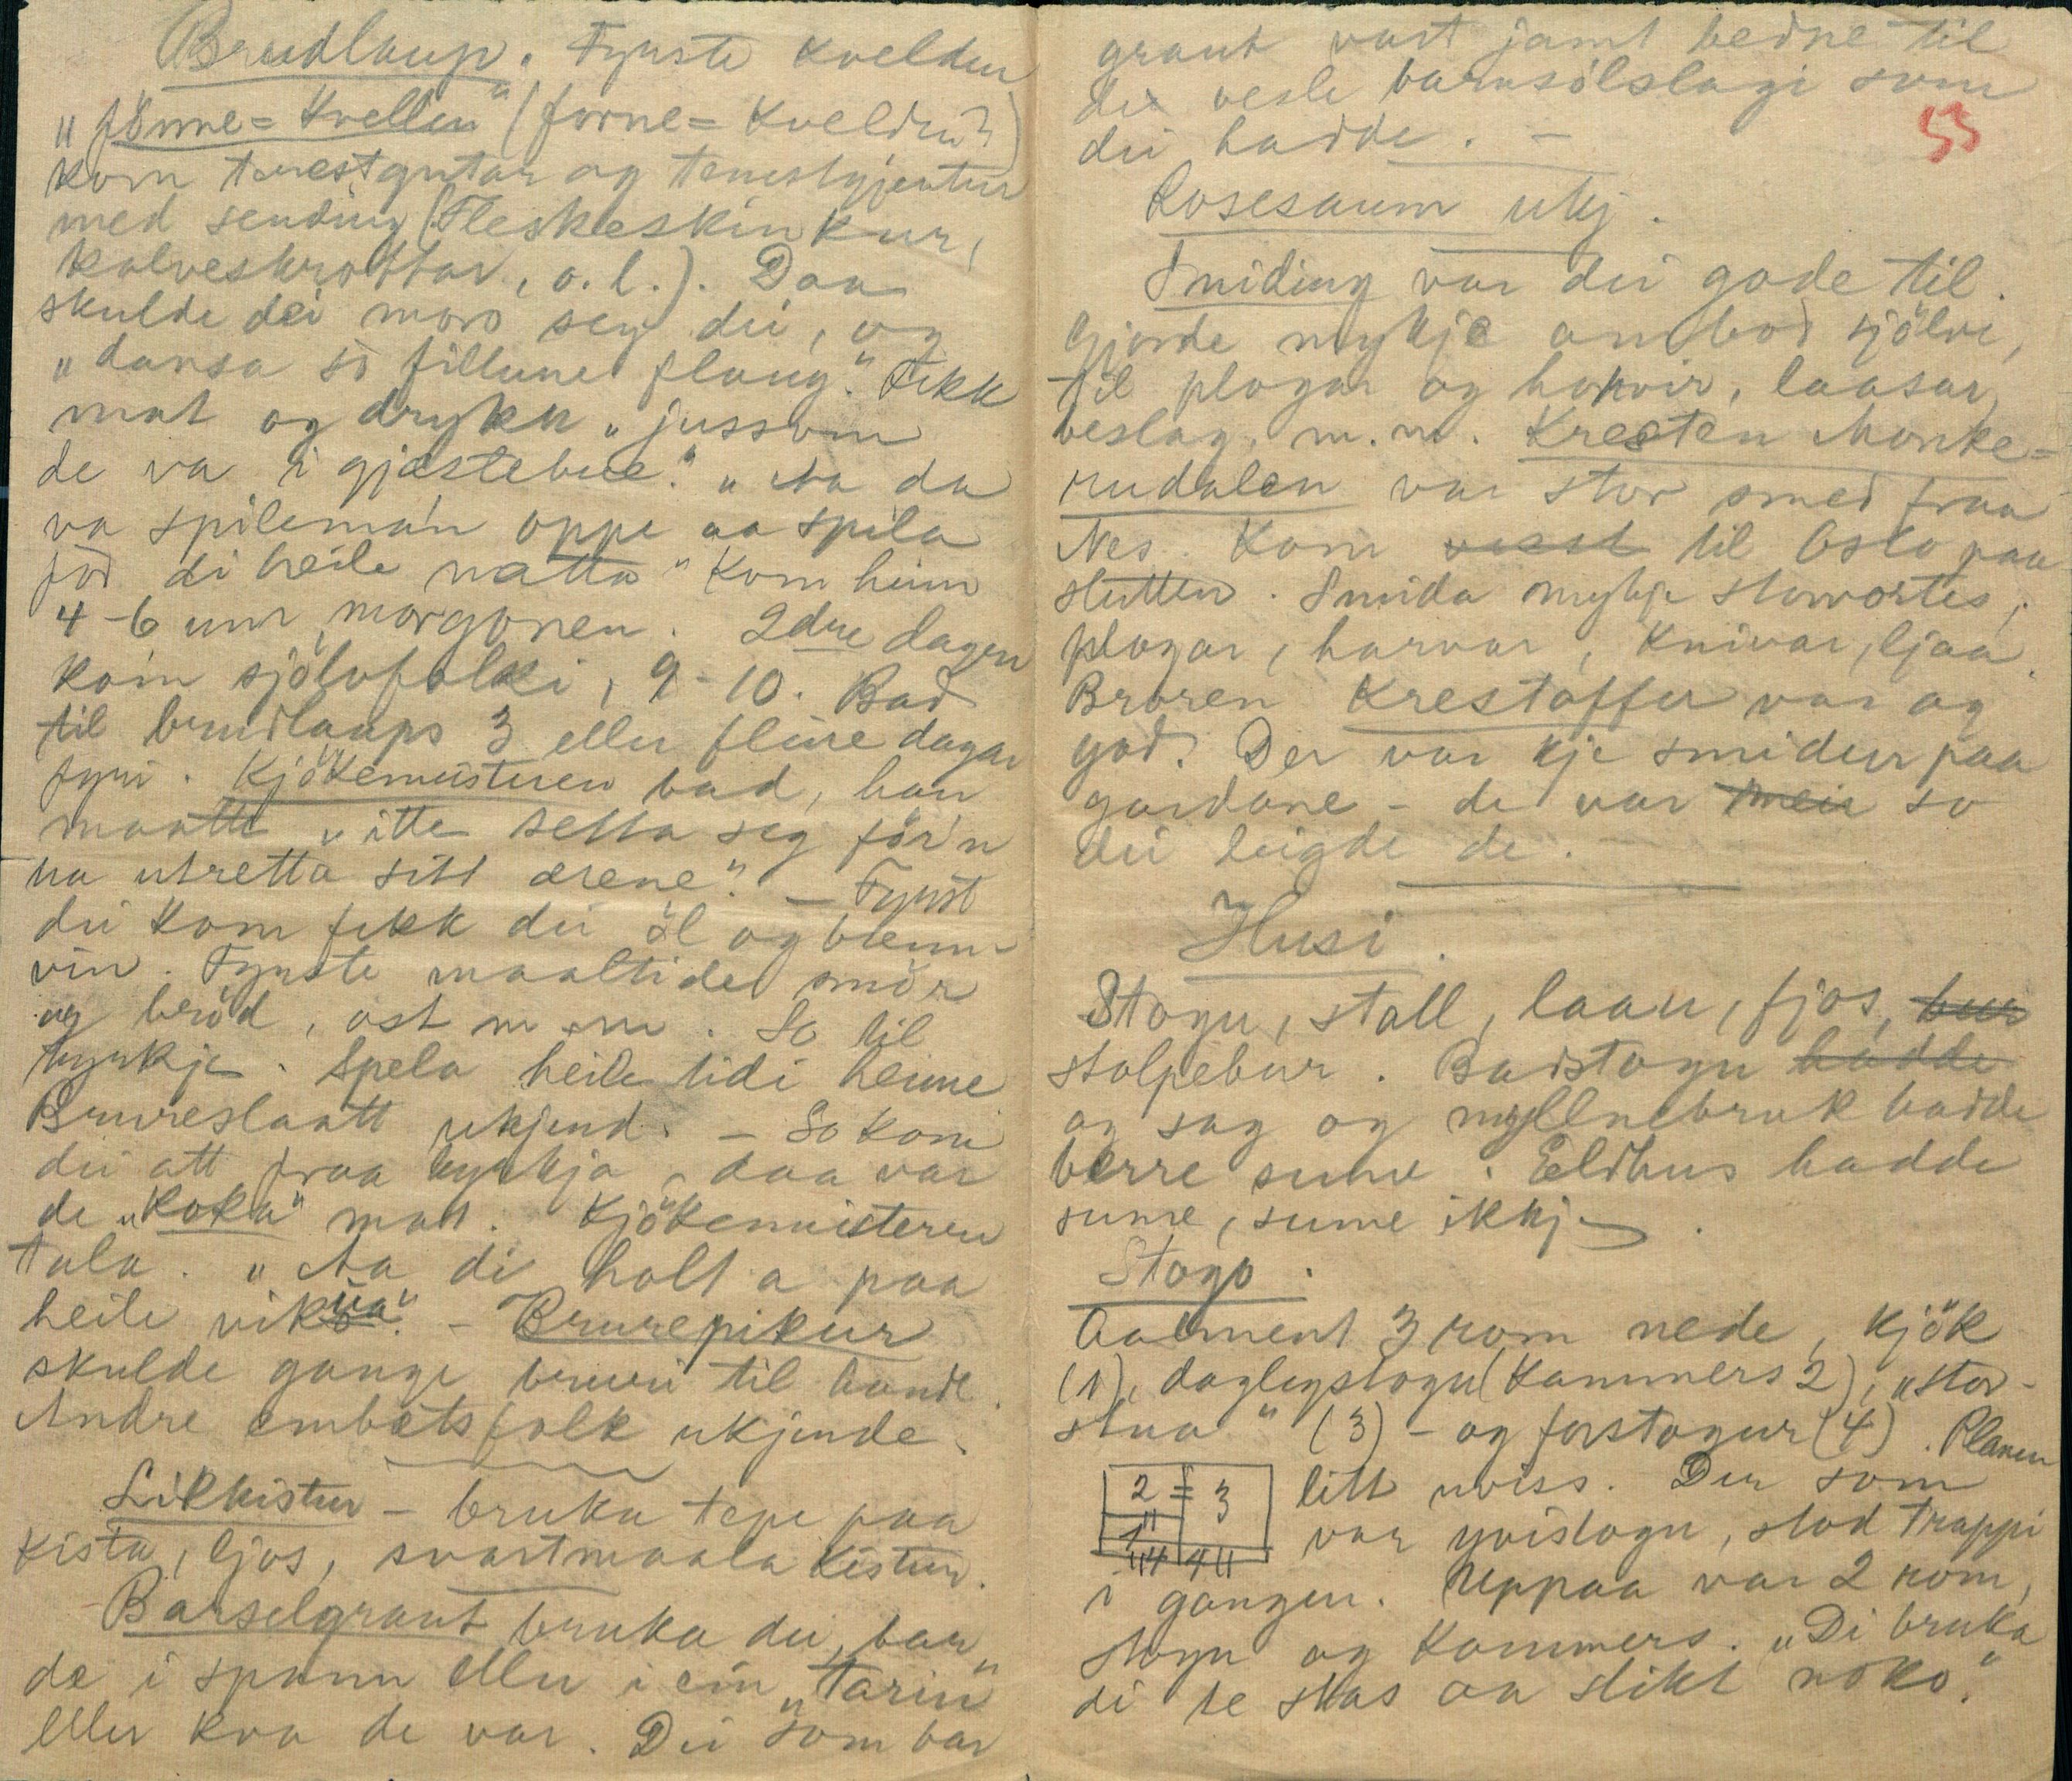 Brudlaup. Fyrste kvelden
„fönne=kvellen" (forne=kvelden?)
kom tenestgutar og tenestgjentur
med sending (Fleskeskinkur,
kalveskrottar, o.l.). Daa
skulde dei moro seg dei, og
„dansa so fillune flaug." Fekk
mat og drykk „jussom
de va i gjæstebue." „Aa da
va spilemann oppe aa spila
för di heile natta" Kom heim
4-6 um morgonen. 2dre dagen
kom sjölvfolki, 9-10. Bad
til brudlaups 3 eller fleire dagar
fyri. Kjökemeisteren bad, han
maatte „itte setta seg för'n
ha utretta sitt ærene". – Fyrst
dei kom fekk dei öl og brenn-
vin. Fyrste maaltidet smör
og bröd, ost m.m. So til
kyrkje. Spela heile tidi heime
Brureslaatt ukjend. – So kom
dei att fraa kyrkja, daa var
de „koka" mat. Kjökemeisteren
tala. „Aa di holt a paa
heile vikua". – Brurepikur
skulde gange bruri til hande.
Andre embætsfolk ukjende.
Likkistur – bruka tepe paa
kista, ljos, svartmaala kistur.
Barselgraut bruka dei, bar
de i spann eller i ein „tarin"
eller kva de var. Dei som bar
graut vart jamt bedne til
de vesle barnsölslagi som
dei hadde. –
53
Rosesaum ukj.
Smiding var dei gode til.
Gjorde mykje ambod sjölve,
til plogar og horvir, laasar,
beslag, m.m. Kresten Monke=
rudalen var stor smed fraa
Nes. Kom visst til Oslo paa
slutten. Smida mykje storvortes,
plogar, harvar, knivar, ljaa.
Broren Krestoffer var og
god. Der var kje smidur paa
gardane – de var meir so
dei leigde de.
Husi.
Stogu, stall, laave, fjos, bur
stolpebur. Badstogu hadde
og sag og myllnebruk hadde
berre sume. Eldhus hadde
sume, sume ikkje.
Stogo.
Aalment 3 rom nede, kjök
(1), daglegstogu (kammers 2), „stor-
stua" (3) – og forstogur (4). Planen
2 3
1
4 4
litt uviss. Der som
var yvistogu, stod trappi
i gangen. Uppaa var 2 rom,
stogu og kammers. „Di bruka
di te stas aa slikt noko."